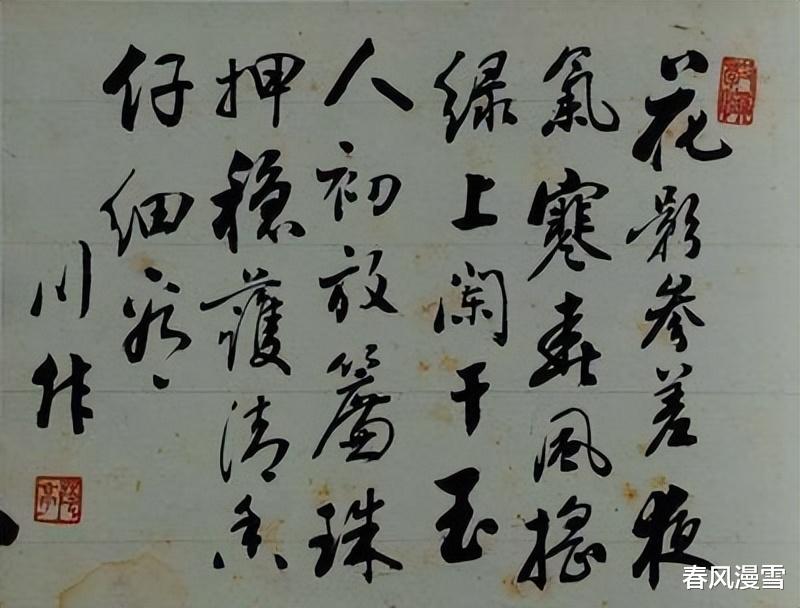 花影參差夜
氣寒春風搖
綠上闌干玉
人初放簾珠
押穩護清香
仔細看
川作
春风漫雪